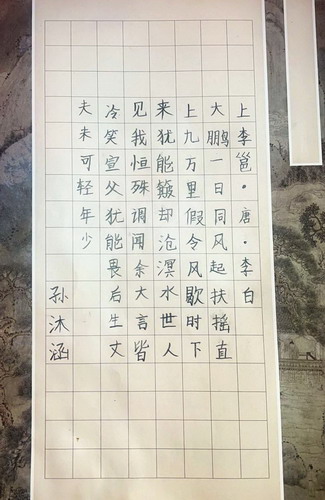 上李邕·唐·李白
大鹏一日同风起扶摇直
上九万里假令风歇时下
来犹能簸却沧溟水世人
见我恒殊调闻余大言皆
冷笑宣父犹能畏后生丈
夫未可轻年少
孙沐涵